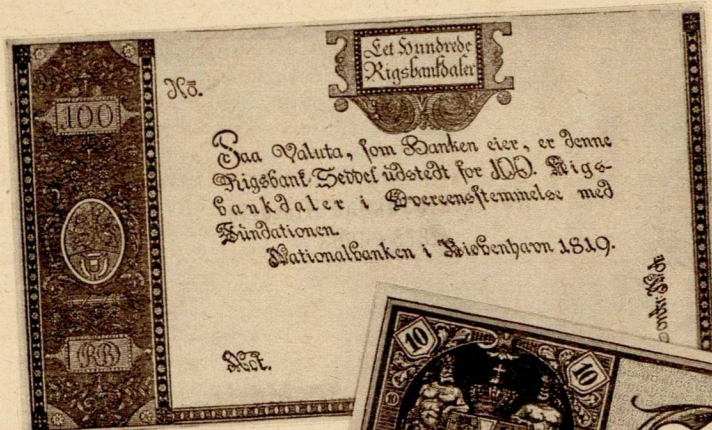 Eet Hundrede
Rigsbankdaler
100
No.
Paa Valuta, som Banken eier, er denne
Rigsbank-Seddel udstedt for 100. Rigs-
bankdaler i Overeensstemmelse med
Fundationen.
Nationalbanken i Kiøbenhavn 1819.
RB
Not.
10
10